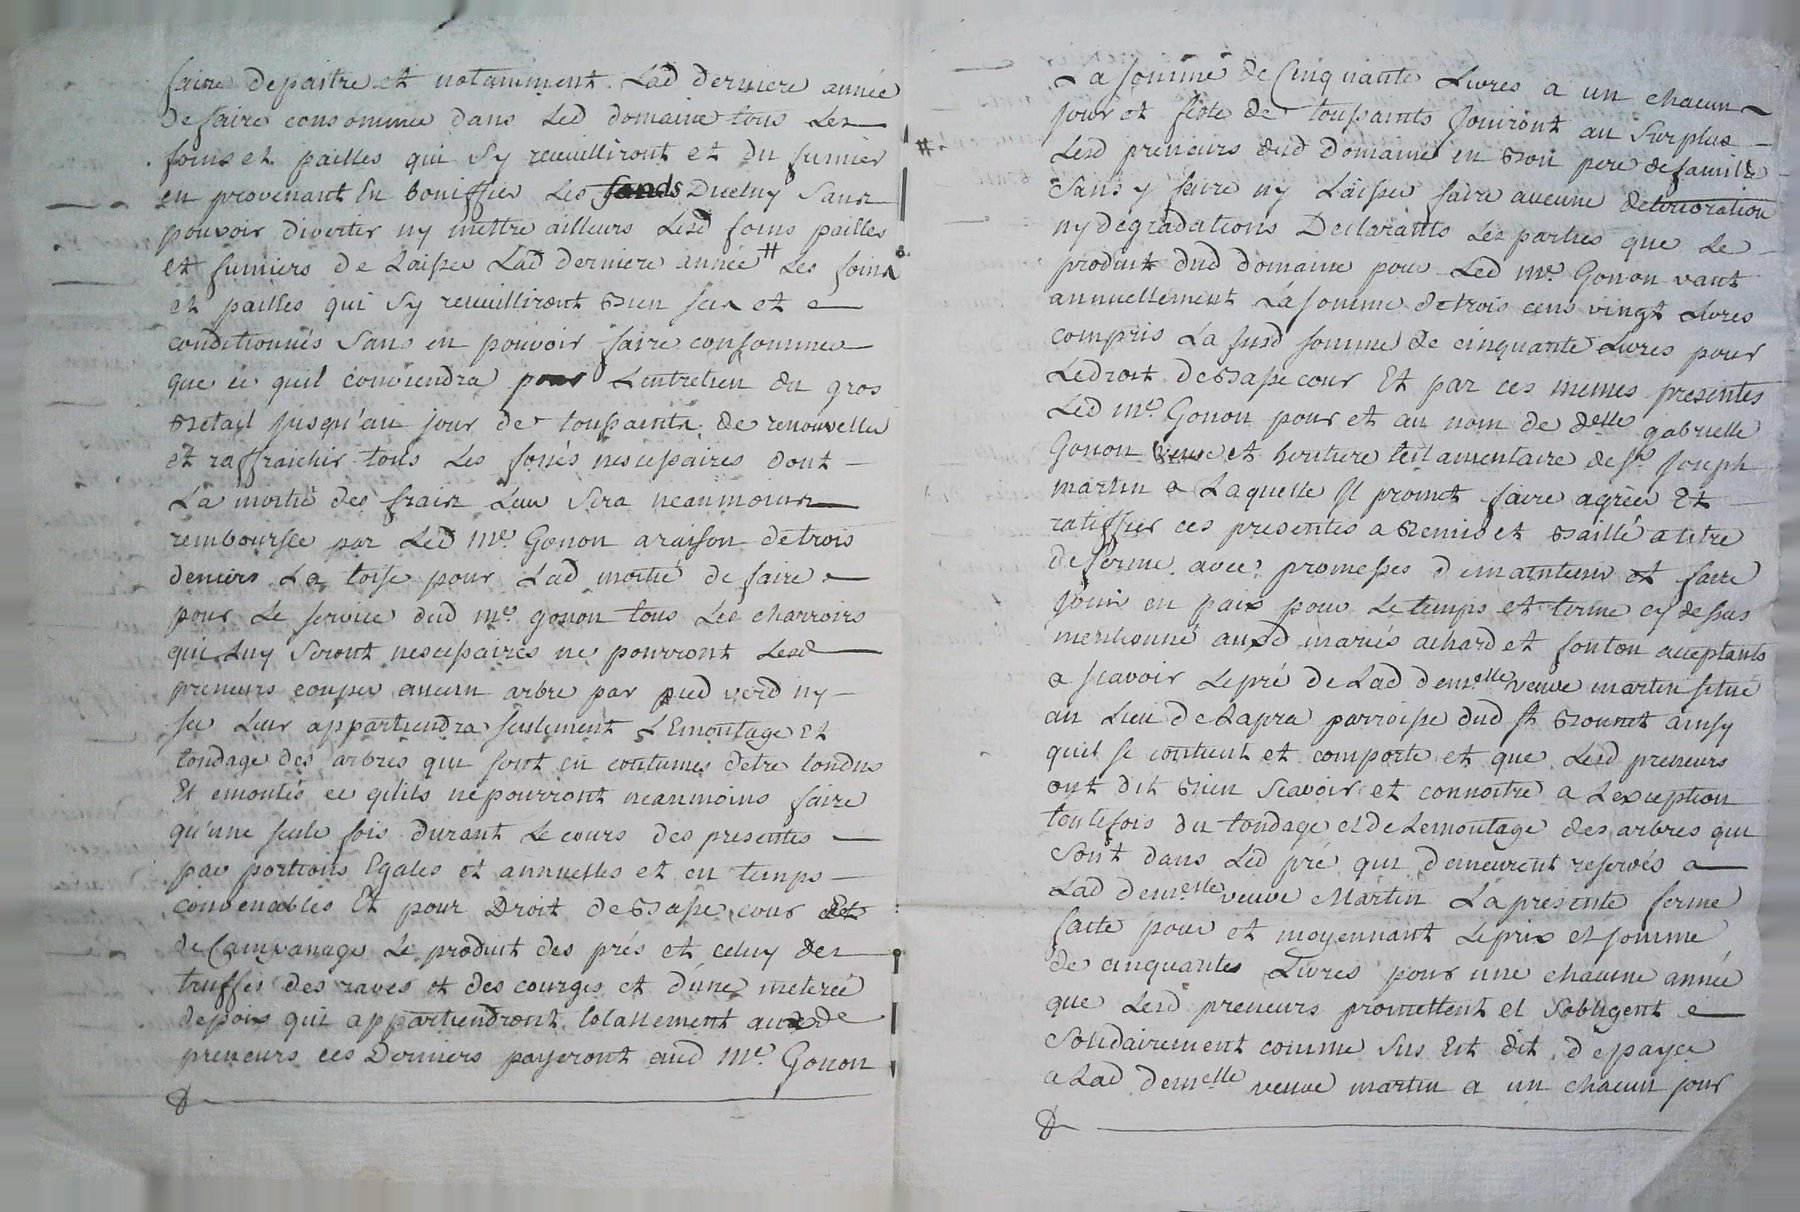 faire depaitre et notamment Lad derniere année
de faire consommer dans Led domaine tous Les
foins et pailles qui Sy recueilliront et du fumier
en provenant En boniffier Les fonds Diceluy Sans
pouvoir divertir ny mettre ailleurs Lesd foins pailles
et fumiers de Laisser Lad derniere année # Les foins
et pailles qui Sy recueilliront Bien secs et
conditionnés Sans en pouvoir faire consommer
que ce quil conviendra pour Lentretien du gros
Betail jusqu'au jour de toussaints de renouveller
et raffraichir tous Les fossés nescessaires dont
La moitié des fraix Leur Sera neanmoins
remboursée par Led Me. Gonon a raison de trois
deniers La toise pour Lad moitié de faire
pour Le service dud Me gonon tous Les charroirs
qui Luy Seront nescessaires ne pourront Lesd
preneurs couper aucun arbre par pied verd ny
sec Leur appartiendra seulement L'Emontage Et
tondage des arbres qui sont en coutumes detre tondus
Et emontés ce qu'ils ne pourront neanmoins faire
qu'une seule fois durant Le cours des presentes
par portions Egales et annuelles et en temps
convenables Et pour Droit de Basse cour et
de Campanage Le produit des prés et celuy des
truffes des raves et des courges et d'une meterée
de poix qui appartiendront totallement auxd
preneurs ces Derniers payeront aud Me. Gonon
La somme de Cinquante Livres a un chacun
jour et feste de toussaints Jouiront au Surplus
#
Lesd preneurs dud Domaine en Bon pere de famille
Sans y faire ny Laisser faire aucune deterioration
ny degradations Declarants Les parties que Le
produit dud domaine pour Led Me. Gonon vaut
annuellement La somme de trois cens vingt Livres
compris La susd somme de cinquante Livres pour
Ledroit de Basse cour Et par ces memes presentes
Led Me Gonon pour et au nom de delle gabrielle
Gonon veuve et heritiere testamentaire de sr. Joseph
martin a Laquelle Il promet faire agréer Et
ratiffier ces presentes a Remis et Baillé a titre
de ferme avec promesses de maintenir et faire
jouir en paix pour Le temps et terme cy dessus
mentionné auxd mariés achard et fonton acceptants
a scavoir Le pré de Lad demelle veuve martin situé
au Lieu de Lapra parroisse dud St Bonnet ainsy
quil se contient et comporte et que Lesd preneurs
ont dit Bien Scavoir et connoitre a Lexception
toutefois du tondage et de Lemontage des arbres qui
Sont dans Led pré qui demeurent reservés a
Lad demelle veuve Martin La presente ferme
faite pour et moyennant Le prix et somme
de cinquante Livres pour une chacune année
que Lesd preneurs promettent et S'obligent
Solidairement comme Sus Est dit de payer
a Lad demelle veuve martin a un chacun jour